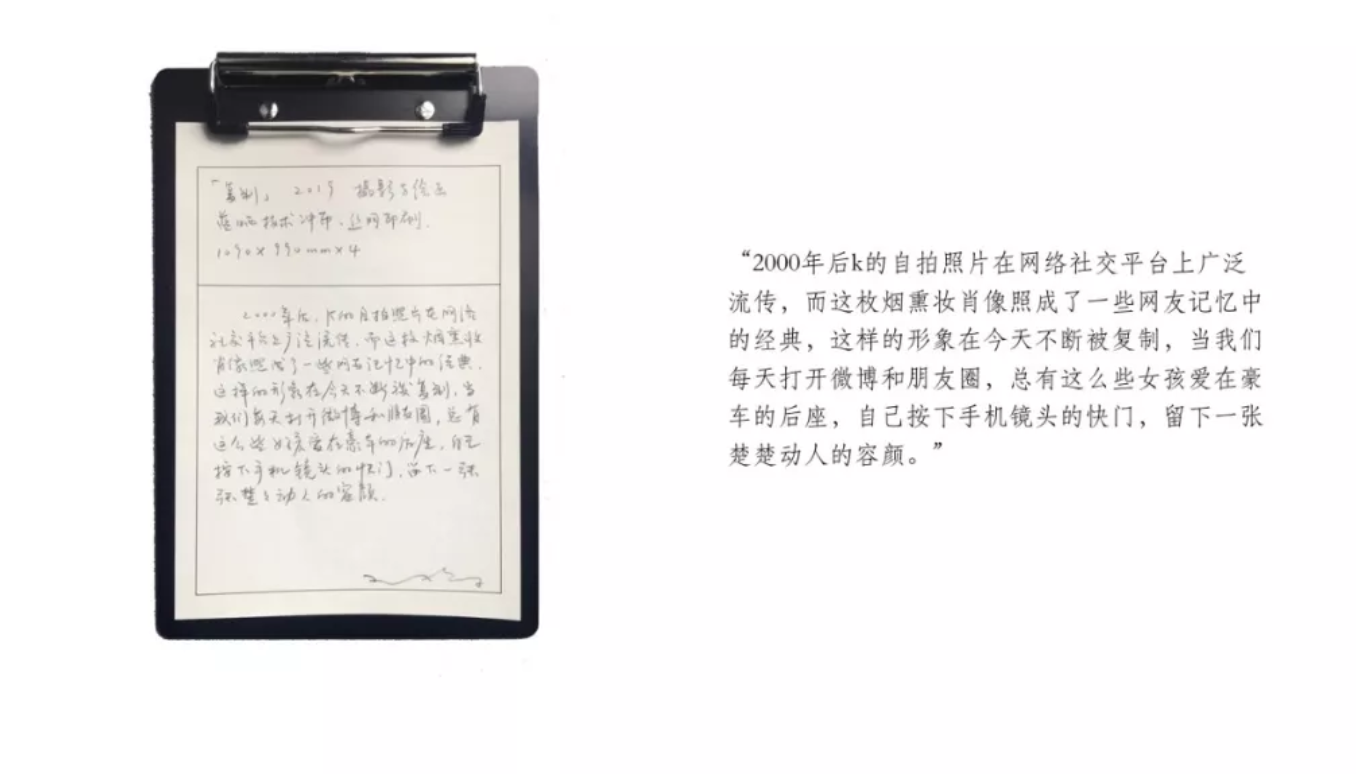 「复制」 2019 摄影与绘画
技术冲印、丝网印刷.
1090×990mm×4
2000年后，K的自拍照片在网络
社交平台上广泛流传，而这枚烟熏妆
肖像照成了一些网友记忆中的经典，
这样的形象在今天不断被复制，当
我们每天打开微博和朋友圈，总有
这么些女孩爱在豪车的后座，自己
按下手机镜头的快门，留下一张
张楚楚动人的容颜.
“2000年后k的自拍照片在网络社交平台上广泛
流传，而这枚烟熏妆肖像照成了一些网友记忆中
的经典，这样的形象在今天不断被复制，当我们
每天打开微博和朋友圈，总有这么些女孩爱在豪
车的后座，自己按下手机镜头的快门，留下一张
楚楚动人的容颜。”